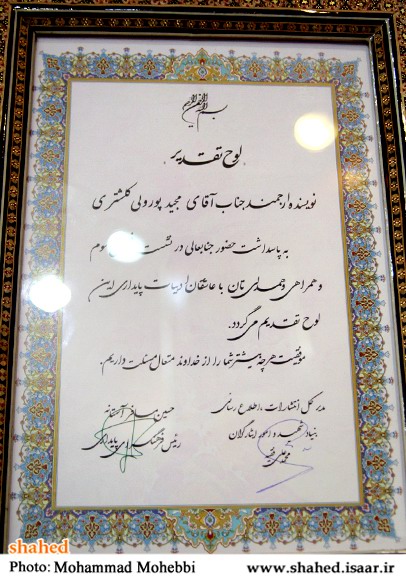 بسم الله الرحمن الرحیم
لوح تقدیر
نویسنده ارجمند جناب آقای مجید پورولی کلشتری
به پاسداشت حضور جنابعالی در نشست سوم
و همراهی و همدلی تان با عاشقان ادبیات پایداری این
لوح تقدیم می گردد.
موفقیت هر چه بیشتر شما را از خداوند متعال مسئلت داریم.
مدیر کل انتشارات، اطلاع رسانی
بنیاد شهید و امور ایثارگران
حسین
رئیس فرهنگسرای پایداری
shahed
Photo: Mohammad Mohebbi
www.shahed.isaar.ir